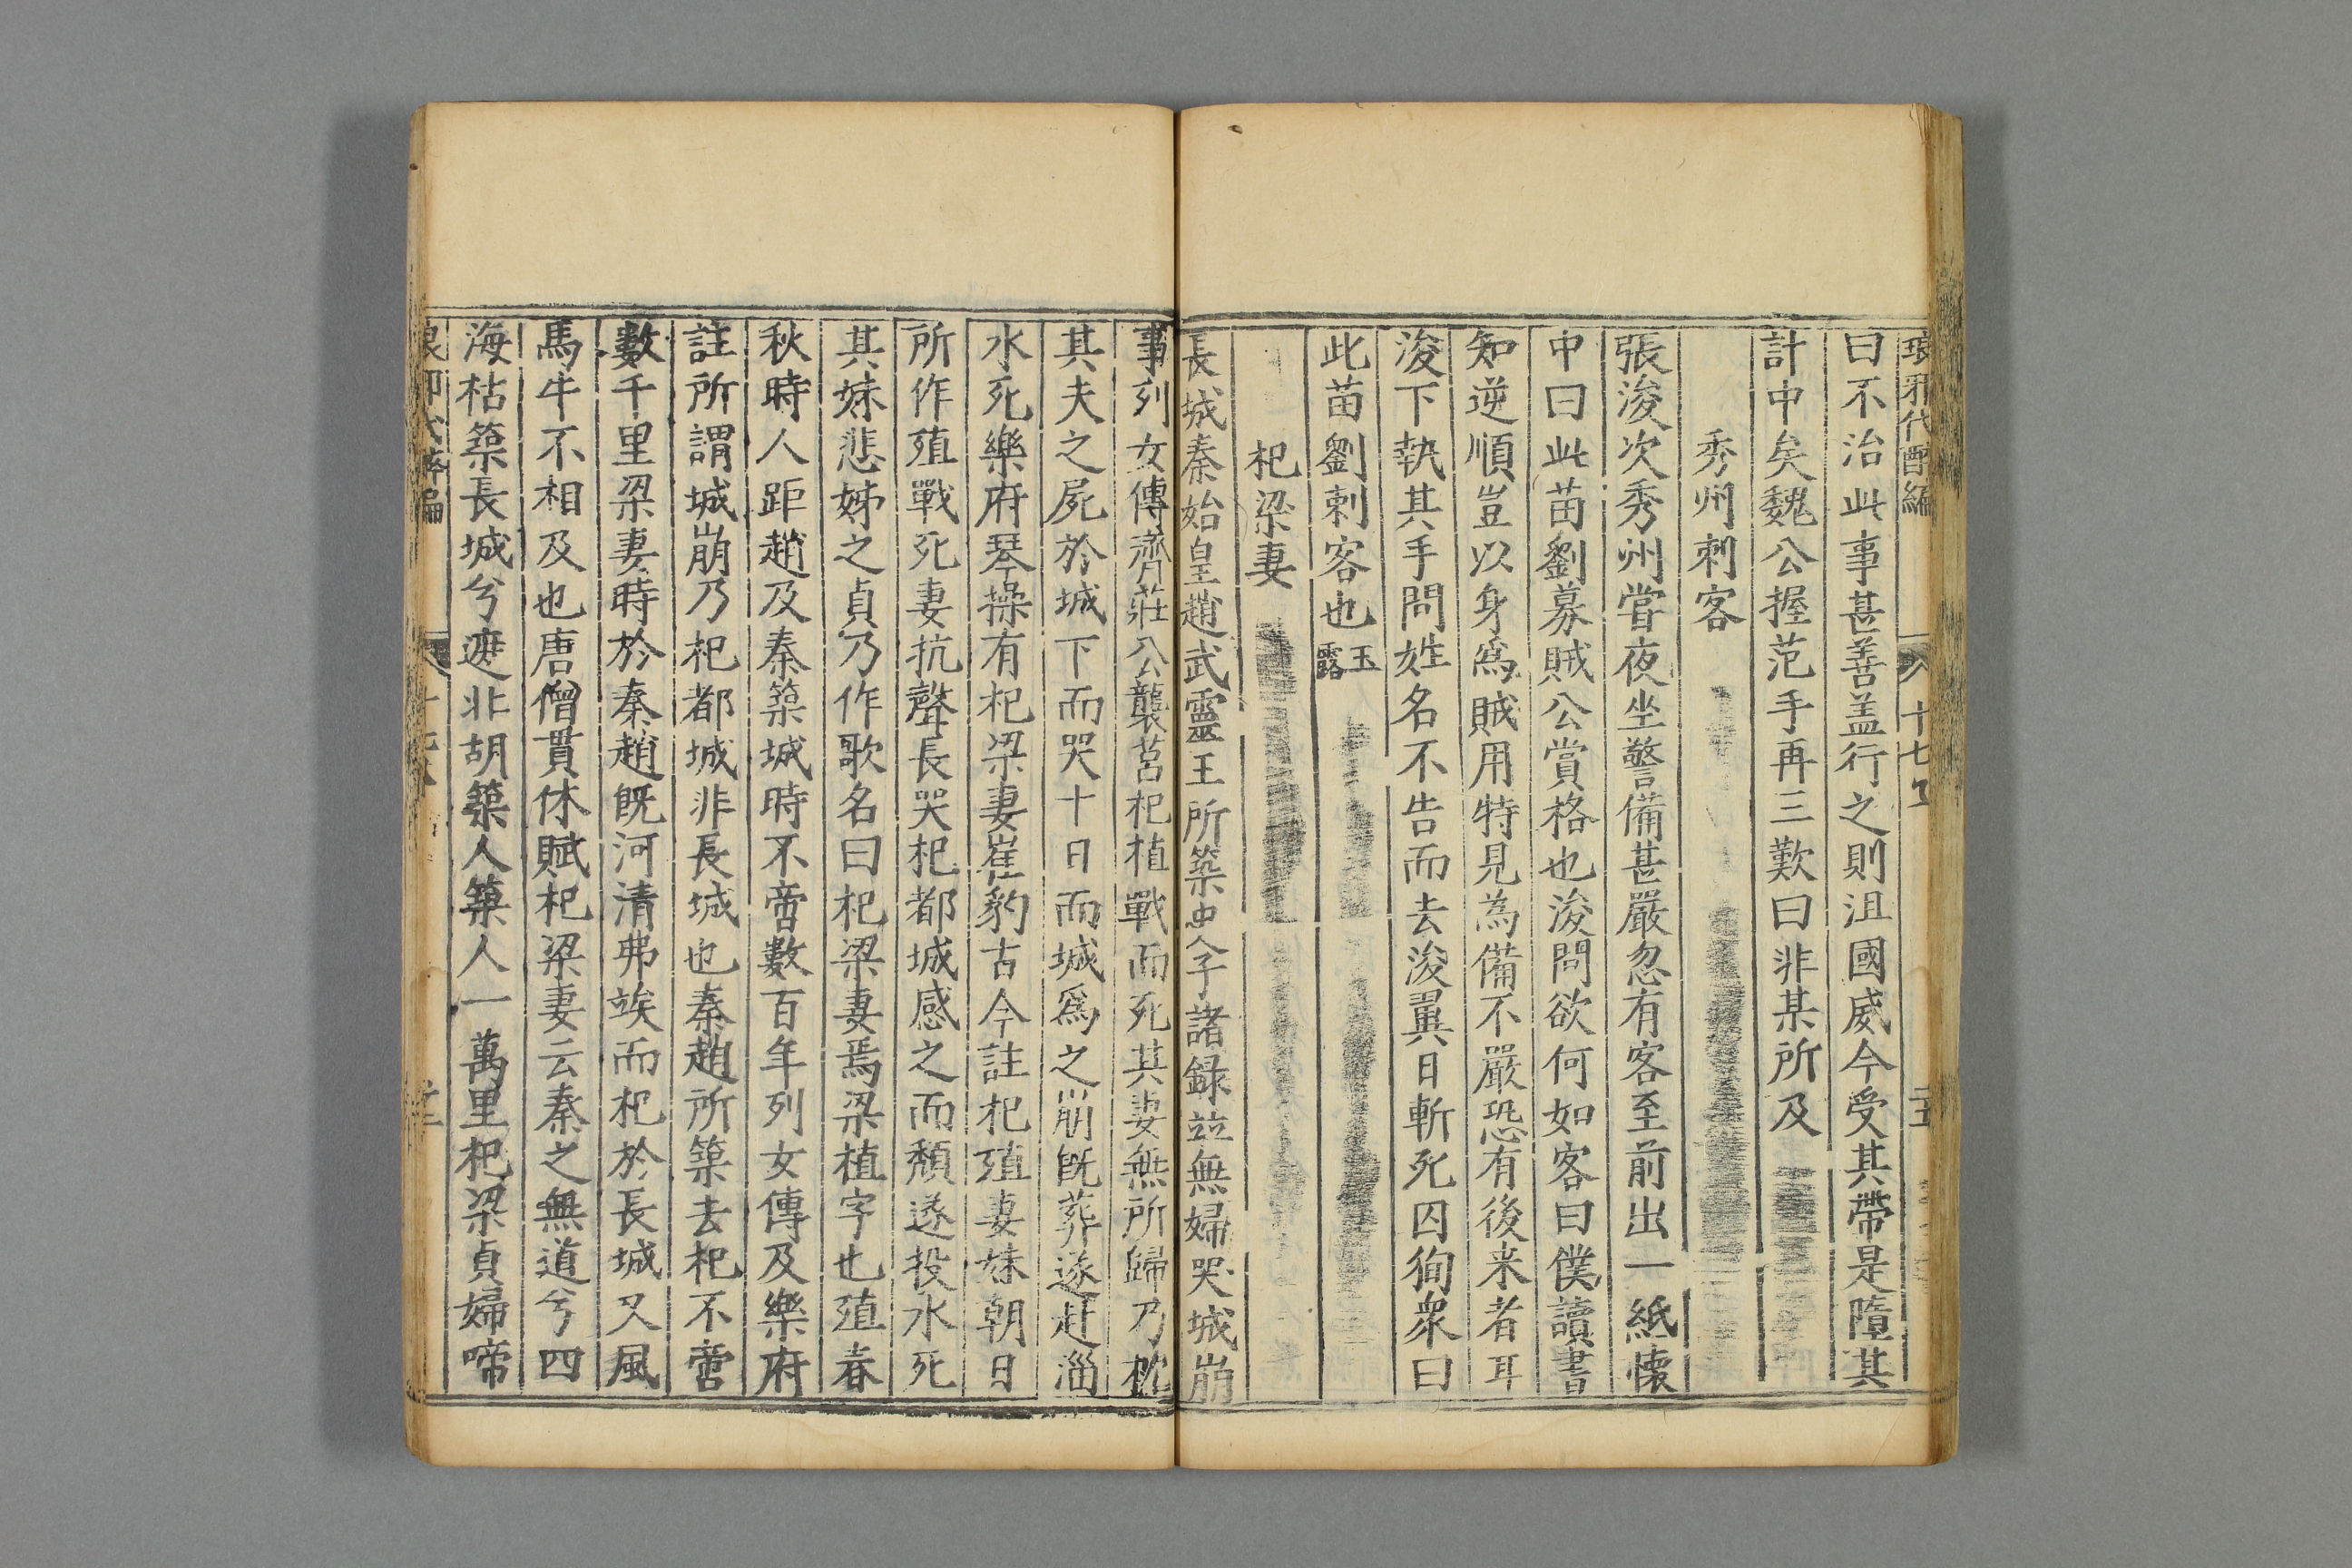 琅邪代醉編 十七
曰不治此事甚善盖行之則沮國威今受其帶是墮其
計中矣魏公握范手再三歎曰非某所及
秀州刺客
張浚次秀州嘗夜坐警備甚嚴忽有客至前出一紙懷
中曰此苗劉募賊公賞格也浚問欲何如客曰僕讀書
知逆順豈以身爲賊用特見為備不嚴恐有後来者耳
浚下執其手問姓名不告而去浚翼日斬死囚徇衆曰
此苗劉刺客也玉露
杞梁妻
長城秦始皇趙武靈王所築史子諸録並無婦哭城崩
事列女傳齊莊公襲莒杞植戰而死其妻無所歸乃枕
其夫之屍於城下而哭十日而城爲之崩既葬遂赴淄
水死樂府琴操有杞梁妻崔豹古今註杞殖妻妹朝日
所作殖戰死妻抗聲長哭杞都城感之而頹遂投水死
其妹悲姊之貞乃作歌名曰杞梁妻焉梁植字也殖春
秋時人距趙及秦築城時不啻數百年列女傳及樂府
註所謂城崩乃杞都城非長城也秦趙所築去杞不啻
數千里梁妻時於秦趙既河清弗竢而杞於長城又風
馬牛不相及也唐僧貫休賦杞梁妻云秦之無道兮四
海枯築長城兮遮非胡築人築人一萬里杞梁貞婦啼